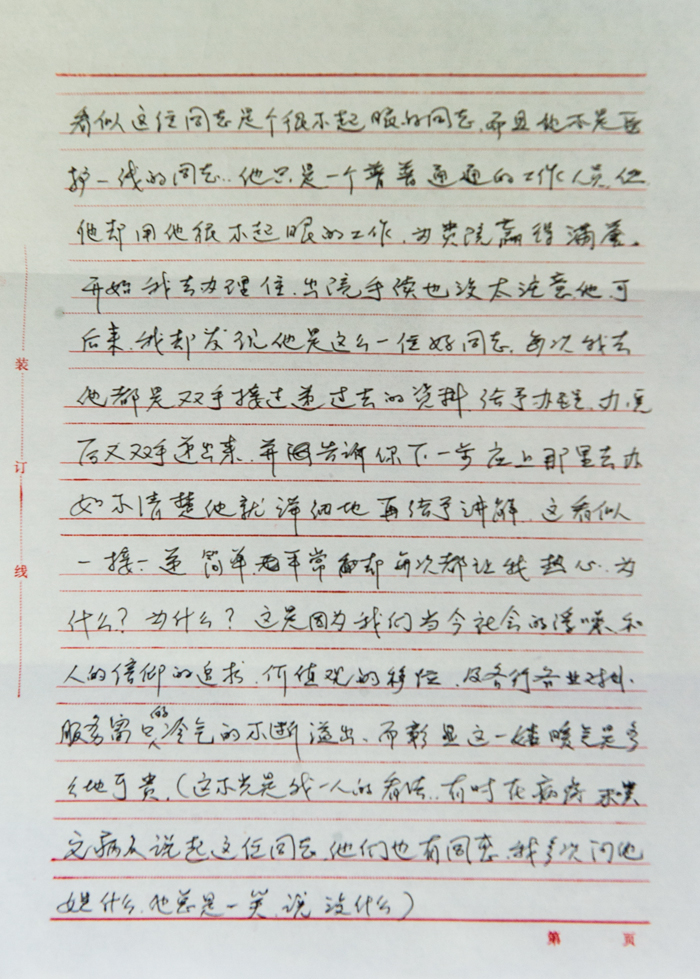 看似这位同志是个很不起眼的同志,而且他不是医
护一线的同志..他只是一个普普通通的工作人员,但
他却用他很不起眼的工作,为贵院赢得满誉。
开始我去办理住.出院手续也没太注意他,可
后来,我却发现他是这么一位好同志,每次我去
他都是双手接过递过去的资料,给予办理,办完
后又双手递出来,并告诉你下一步应上那里去办
如不清楚他就详细地再给予讲解,这看似
一接一递简单平常却每次都让我热心..为
什么?为什么?这是因为我们当今社会的浮噪和
人的信仰的追求,价值观的移位,及各行各业对外
服务窗口的冷气的不断溢出、而彰显这一缕暖气是多
么地可贵,(这不光是我一人的看法,有时在病房
病友说起这位同志,他们也有同感,我多次问他
姓什么,他总是一笑,说没什么)
装
订
线
第 页